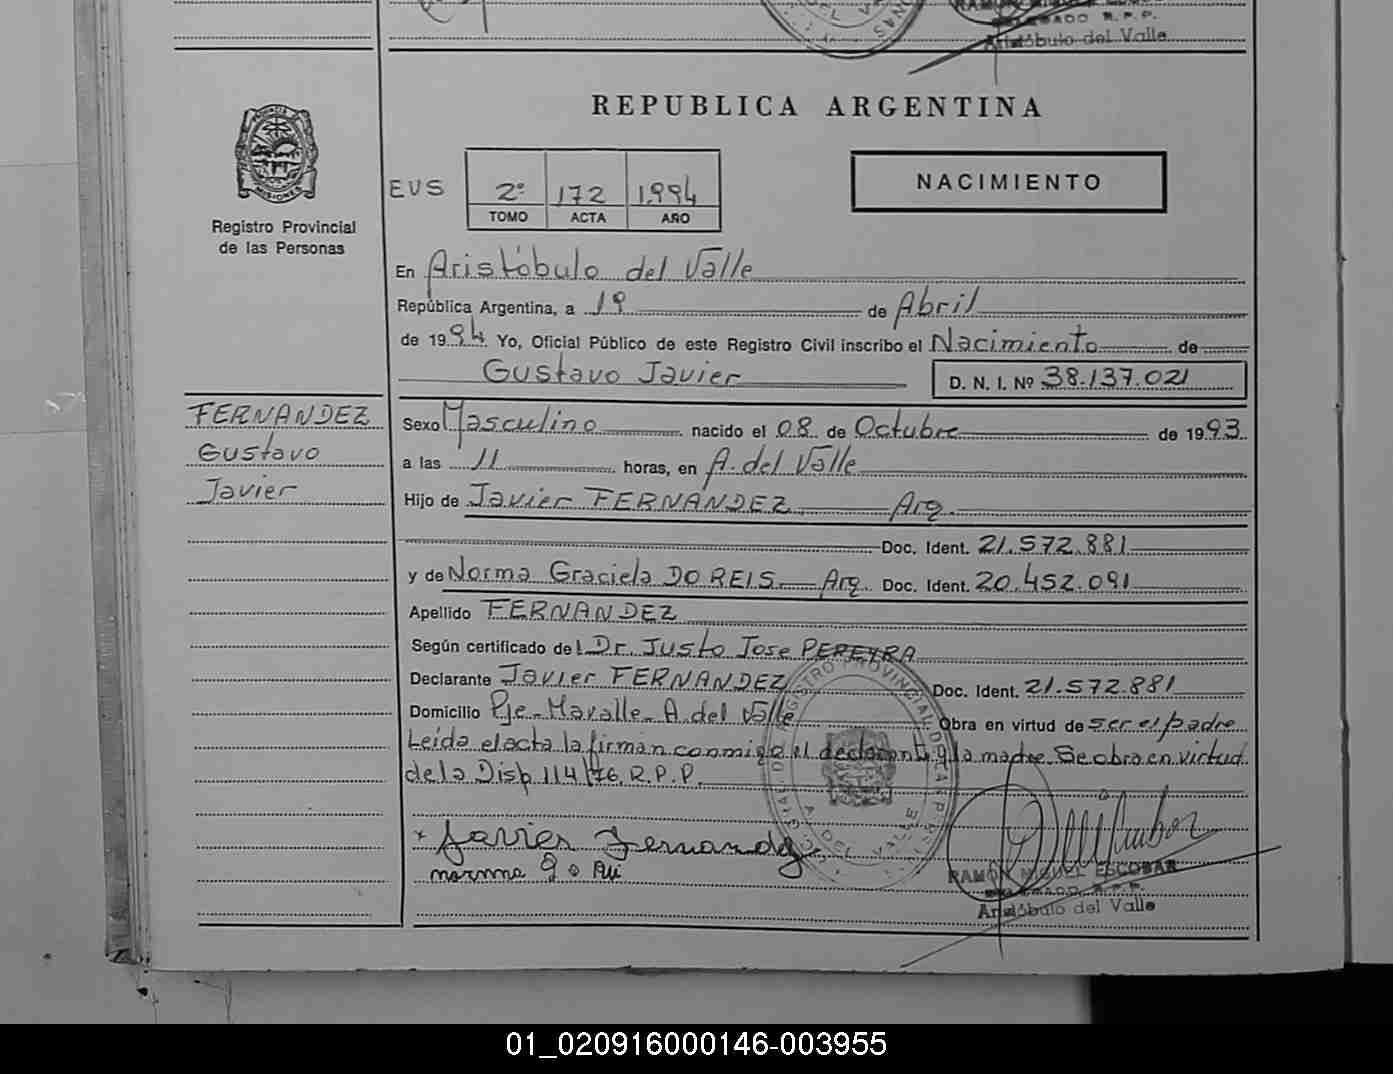 DELEGADO R.P.P.
Aristóbulo del Valle
REPUBLICA ARGENTINA
EVS
2º 172 1994
TOMO ACTA AÑO
NACIMIENTO
MISIONES
Registro Provincial
de las Personas
En Aristóbulo del Valle
República Argentina, a 19 de Abril
de 1994 Yo, Oficial Público de este Registro Civil inscribo el Nacimiento de
Gustavo Javier D. N. I. Nº 38.137.021
FERNANDEZ
Gustavo
Javier
Sexo Masculino nacido el 08 de Octubre de 1993
a las 11 horas, en A. del Valle
Hijo de Javier FERNANDEZ Arg.
Doc. Ident. 21.572.881
y de Norma Graciela DO REIS Arg. Doc. Ident. 20.452.091
Apellido FERNANDEZ
Según certificado del Dr. Justo Jose PEREYRA
Declarante Javier FERNANDEZ Doc. Ident. 21.572.881
Domicilio Pje. Mavalle - A. del Valle Obra en virtud de ser el padre
Leída el acta la firman conmigo el declarante y la madre. Se obra en virtud
de la Disp 114/76 R.P.P.
Javier Fernandez
RAMÓN MIGUEL ESCOBAR
DELEGADO R.P.P.
Aristóbulo del Valle
01_020916000146-003955